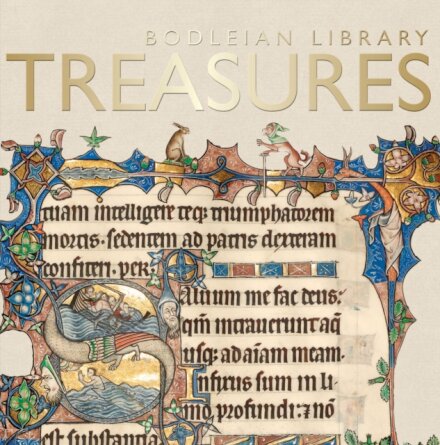 BODLEIAN LIBRARY
TREASURES
tuam intelligere teqȝ triumphatorem
mortis · sedentem ad patris dexteram
confiteri · per:
Saluum me fac deus:
qm̄ intrauerunt aq̄
usqȝ ad aīam meam·
Infixus sum in li-
mo profundi: ⁊ nō
est substantia